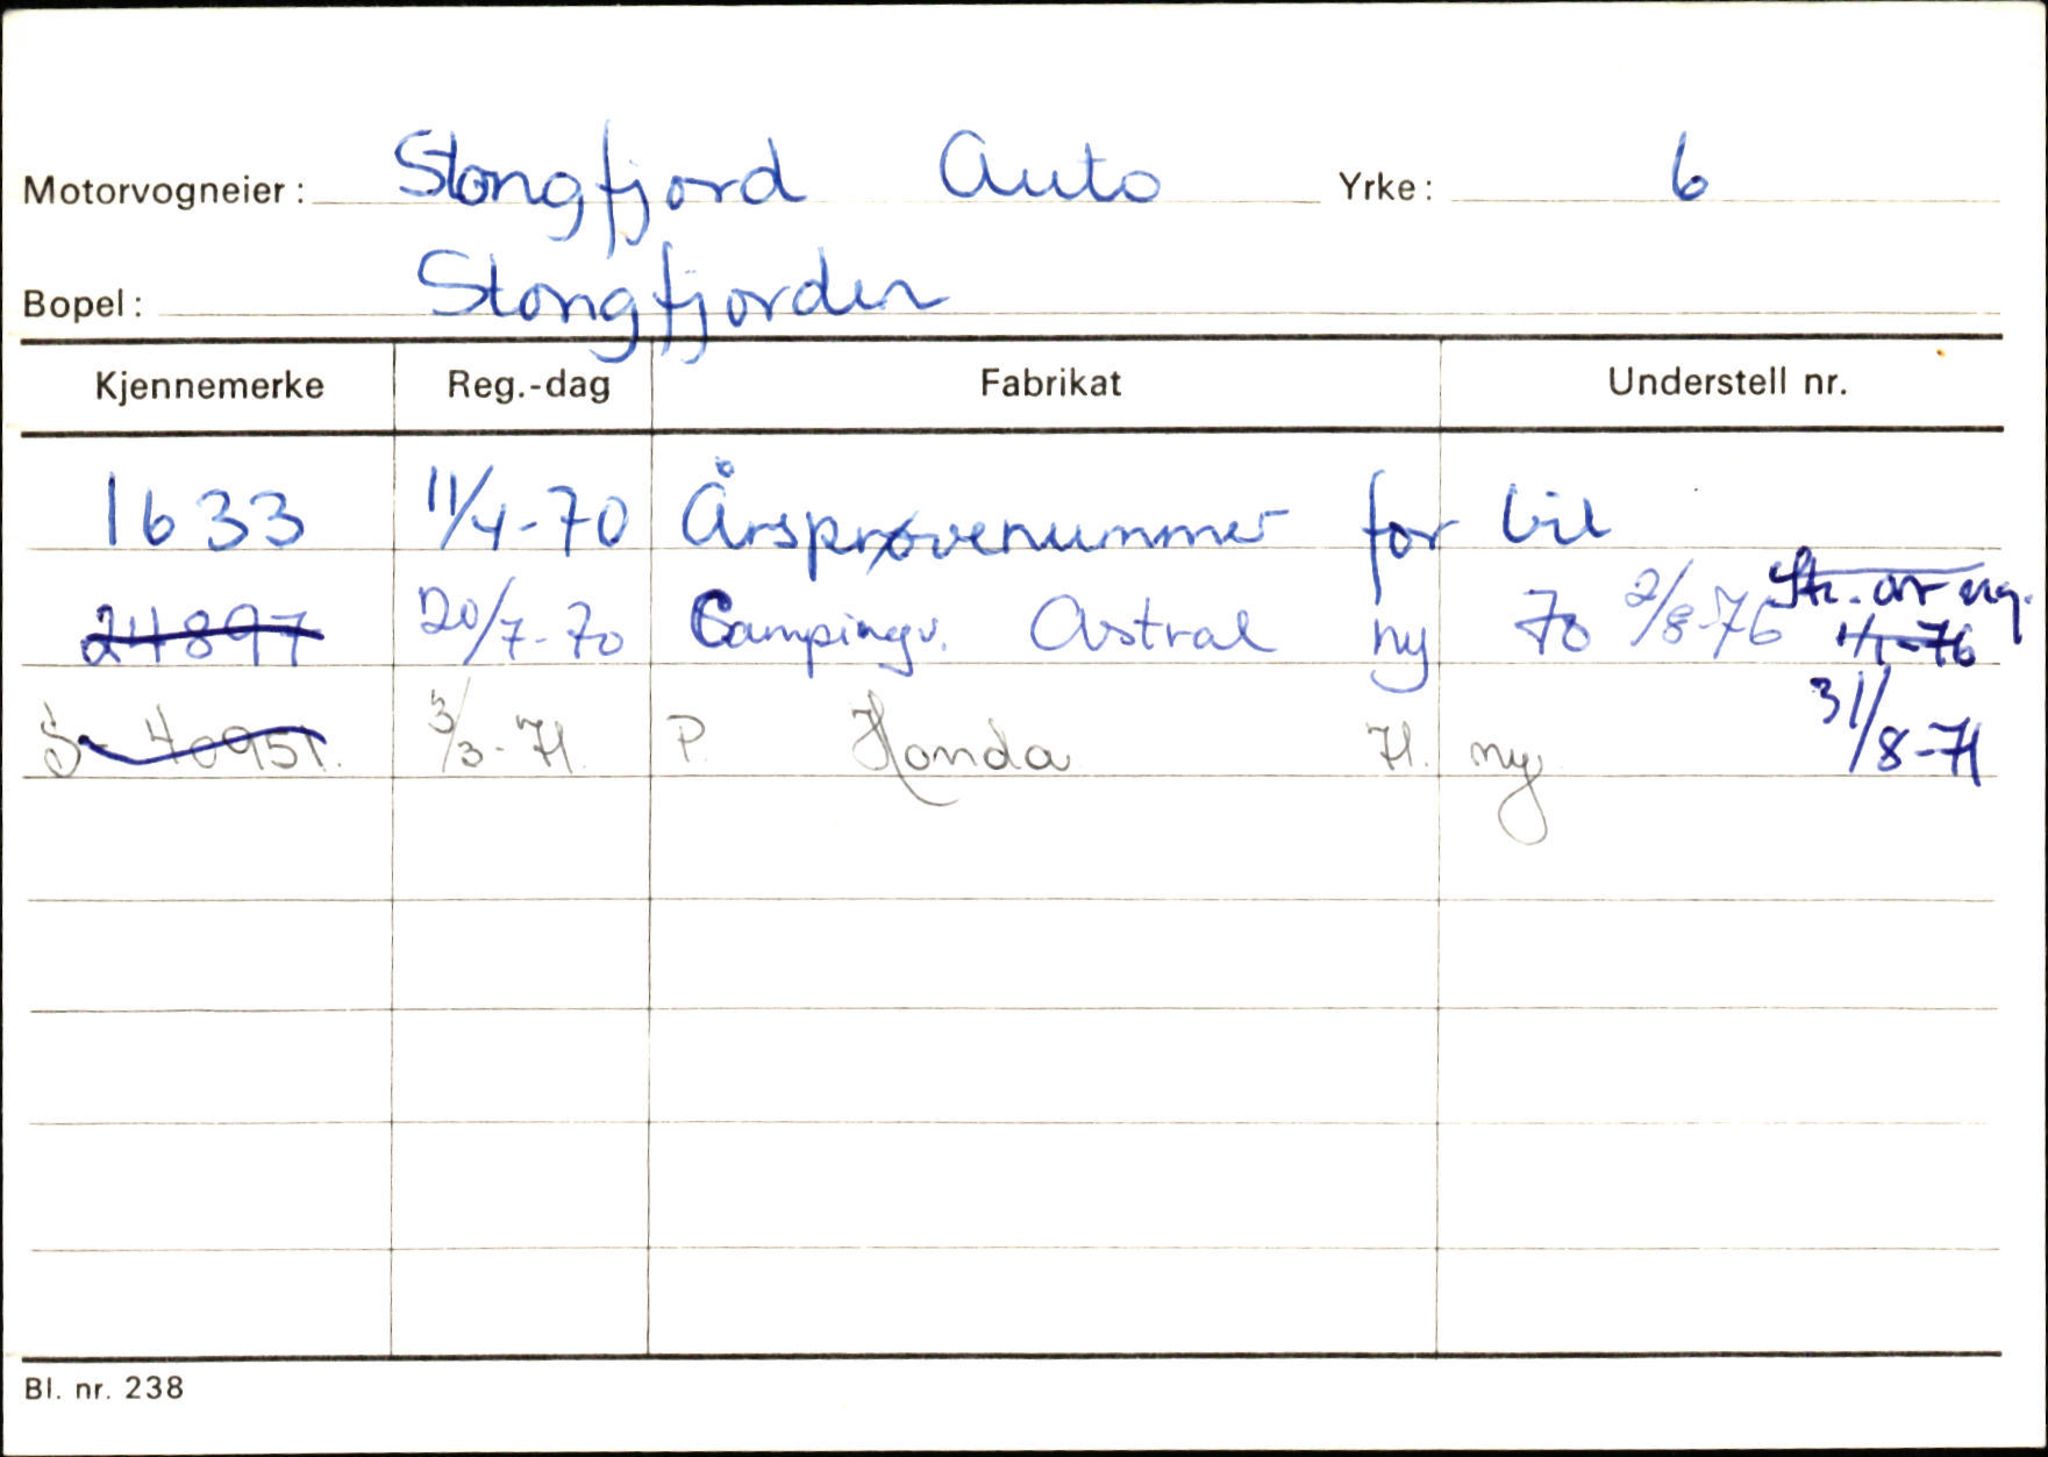 Motorvogneier: Stongfjord Auto Yrke: 6
Bopel: Stongfjorden
Kjennemerke Reg.-dag Fabrikat Understell nr.
1633 11/4-70 Årsprøvenummer for bil
24897 20/7-70 Campingv. Astral ny 70 2/8-76 Str. av reg.
1/1-76
S-40951. 3/3-71. P. Honda 71. ny 31/8-71
Bl. nr. 238